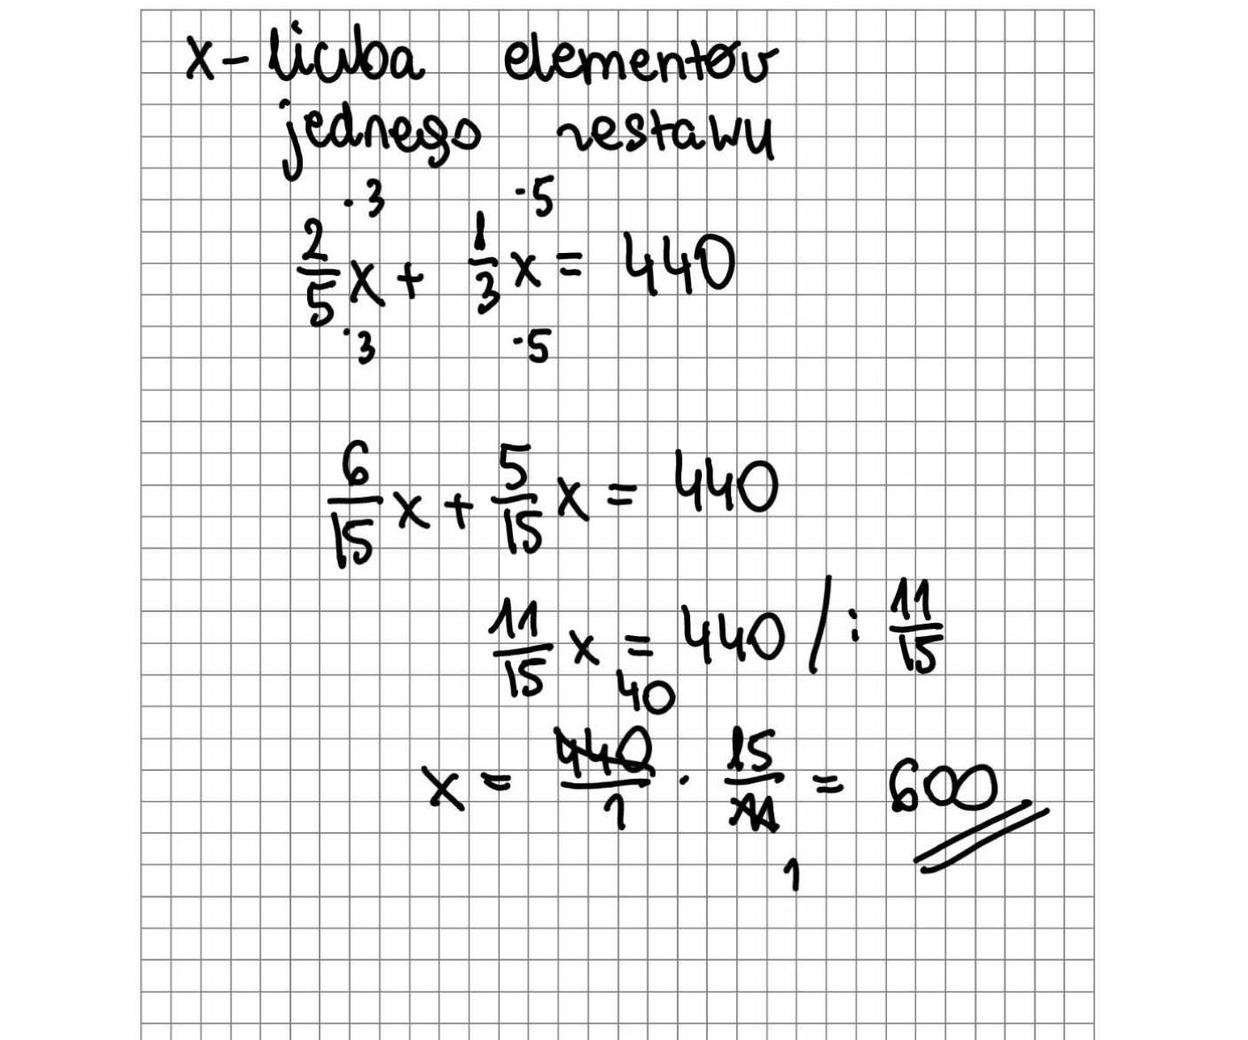 x - liczba elementów
jednego zestawu
·3 ·5
2/5 x + 1/3 x = 440
·3 ·5
6/15 x + 5/15 x = 440
11/15 x = 440 / : 11/15
40
x = 440/1 · 15/11 = 600
1